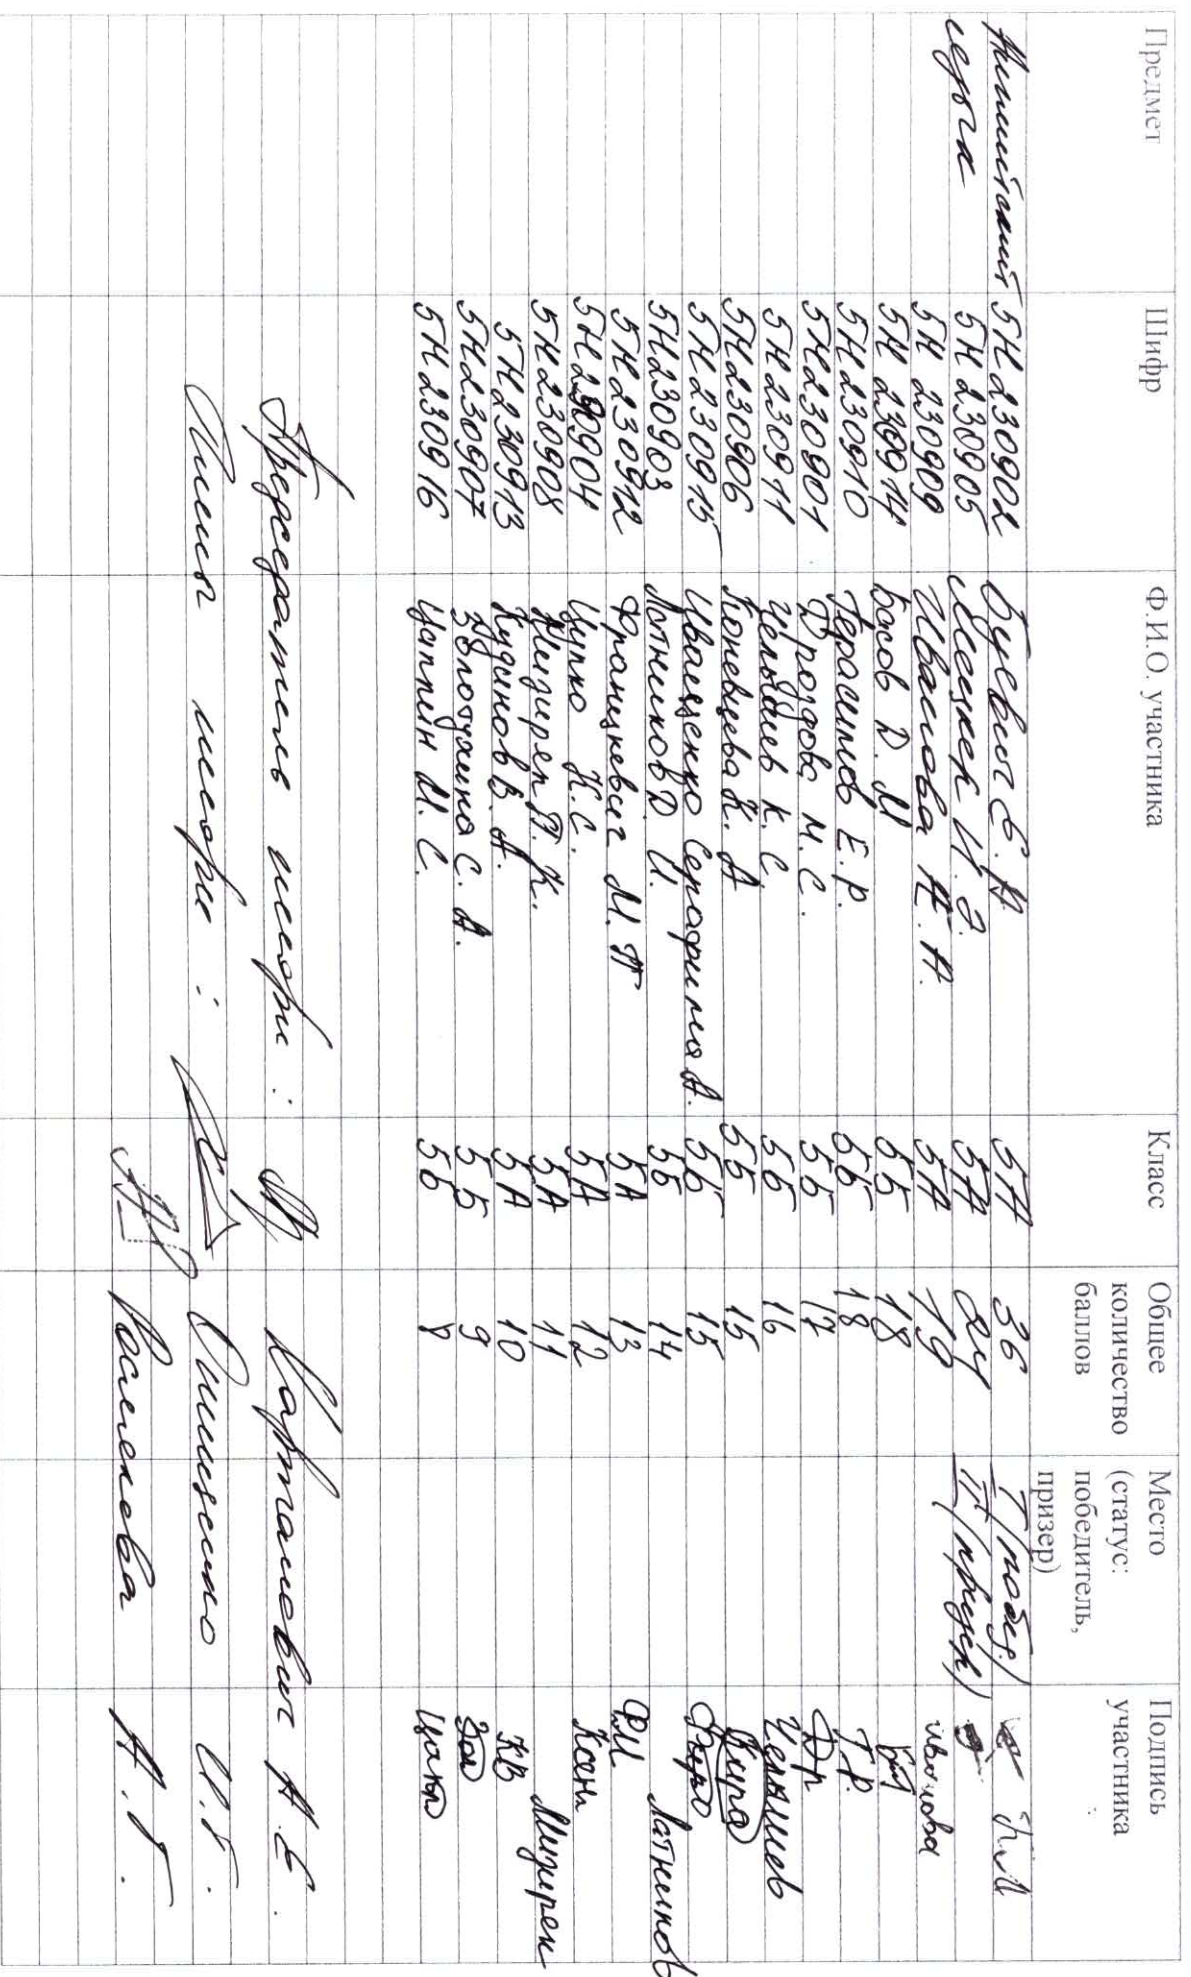 Предмет Шифр Ф.И.О. участника Класс Общее количество баллов Место (статус: победитель, призер) Подпись участника
Английский 5Н230902 Буевич Е. А. 5А 36 I (побед.)
5Н230905 И. Э. 5А 24 II (призер)
5Н230909 Иванова А. 5А 19 Иванова
5Н230914 Басов Д. М 5Б 18
5Н230910 Герасимов Е. Р. 5Б 18 Г.Р.
5Н230901 Дроздова М. С. 5Б 17 Др
5Н230911 К. С. 5Б 16
5Н230906 Коневцева К. А 5Б 15 Кира
5Н230915 Иващенко Серафима А. 5Б 15
5Н230903 Лотников Д. И. 5Б 14 Латников
5Н230912 Францкевич М. П 5А 13 ФМ
5Н230904 Цупко К. С. 5А 12 Ксени
5Н230908 Т. К. 5А 11
5Н230913 Кудинов В. А. 5А 10 КВ
5Н230907 Золотухина С. А. 5Б 9 Зол
5Н230916 Цаплин М. С. 5Б 8
Председатель жюри : Картамович А. Е.
Члены жюри : Онищенко И. Г.
А. Г.